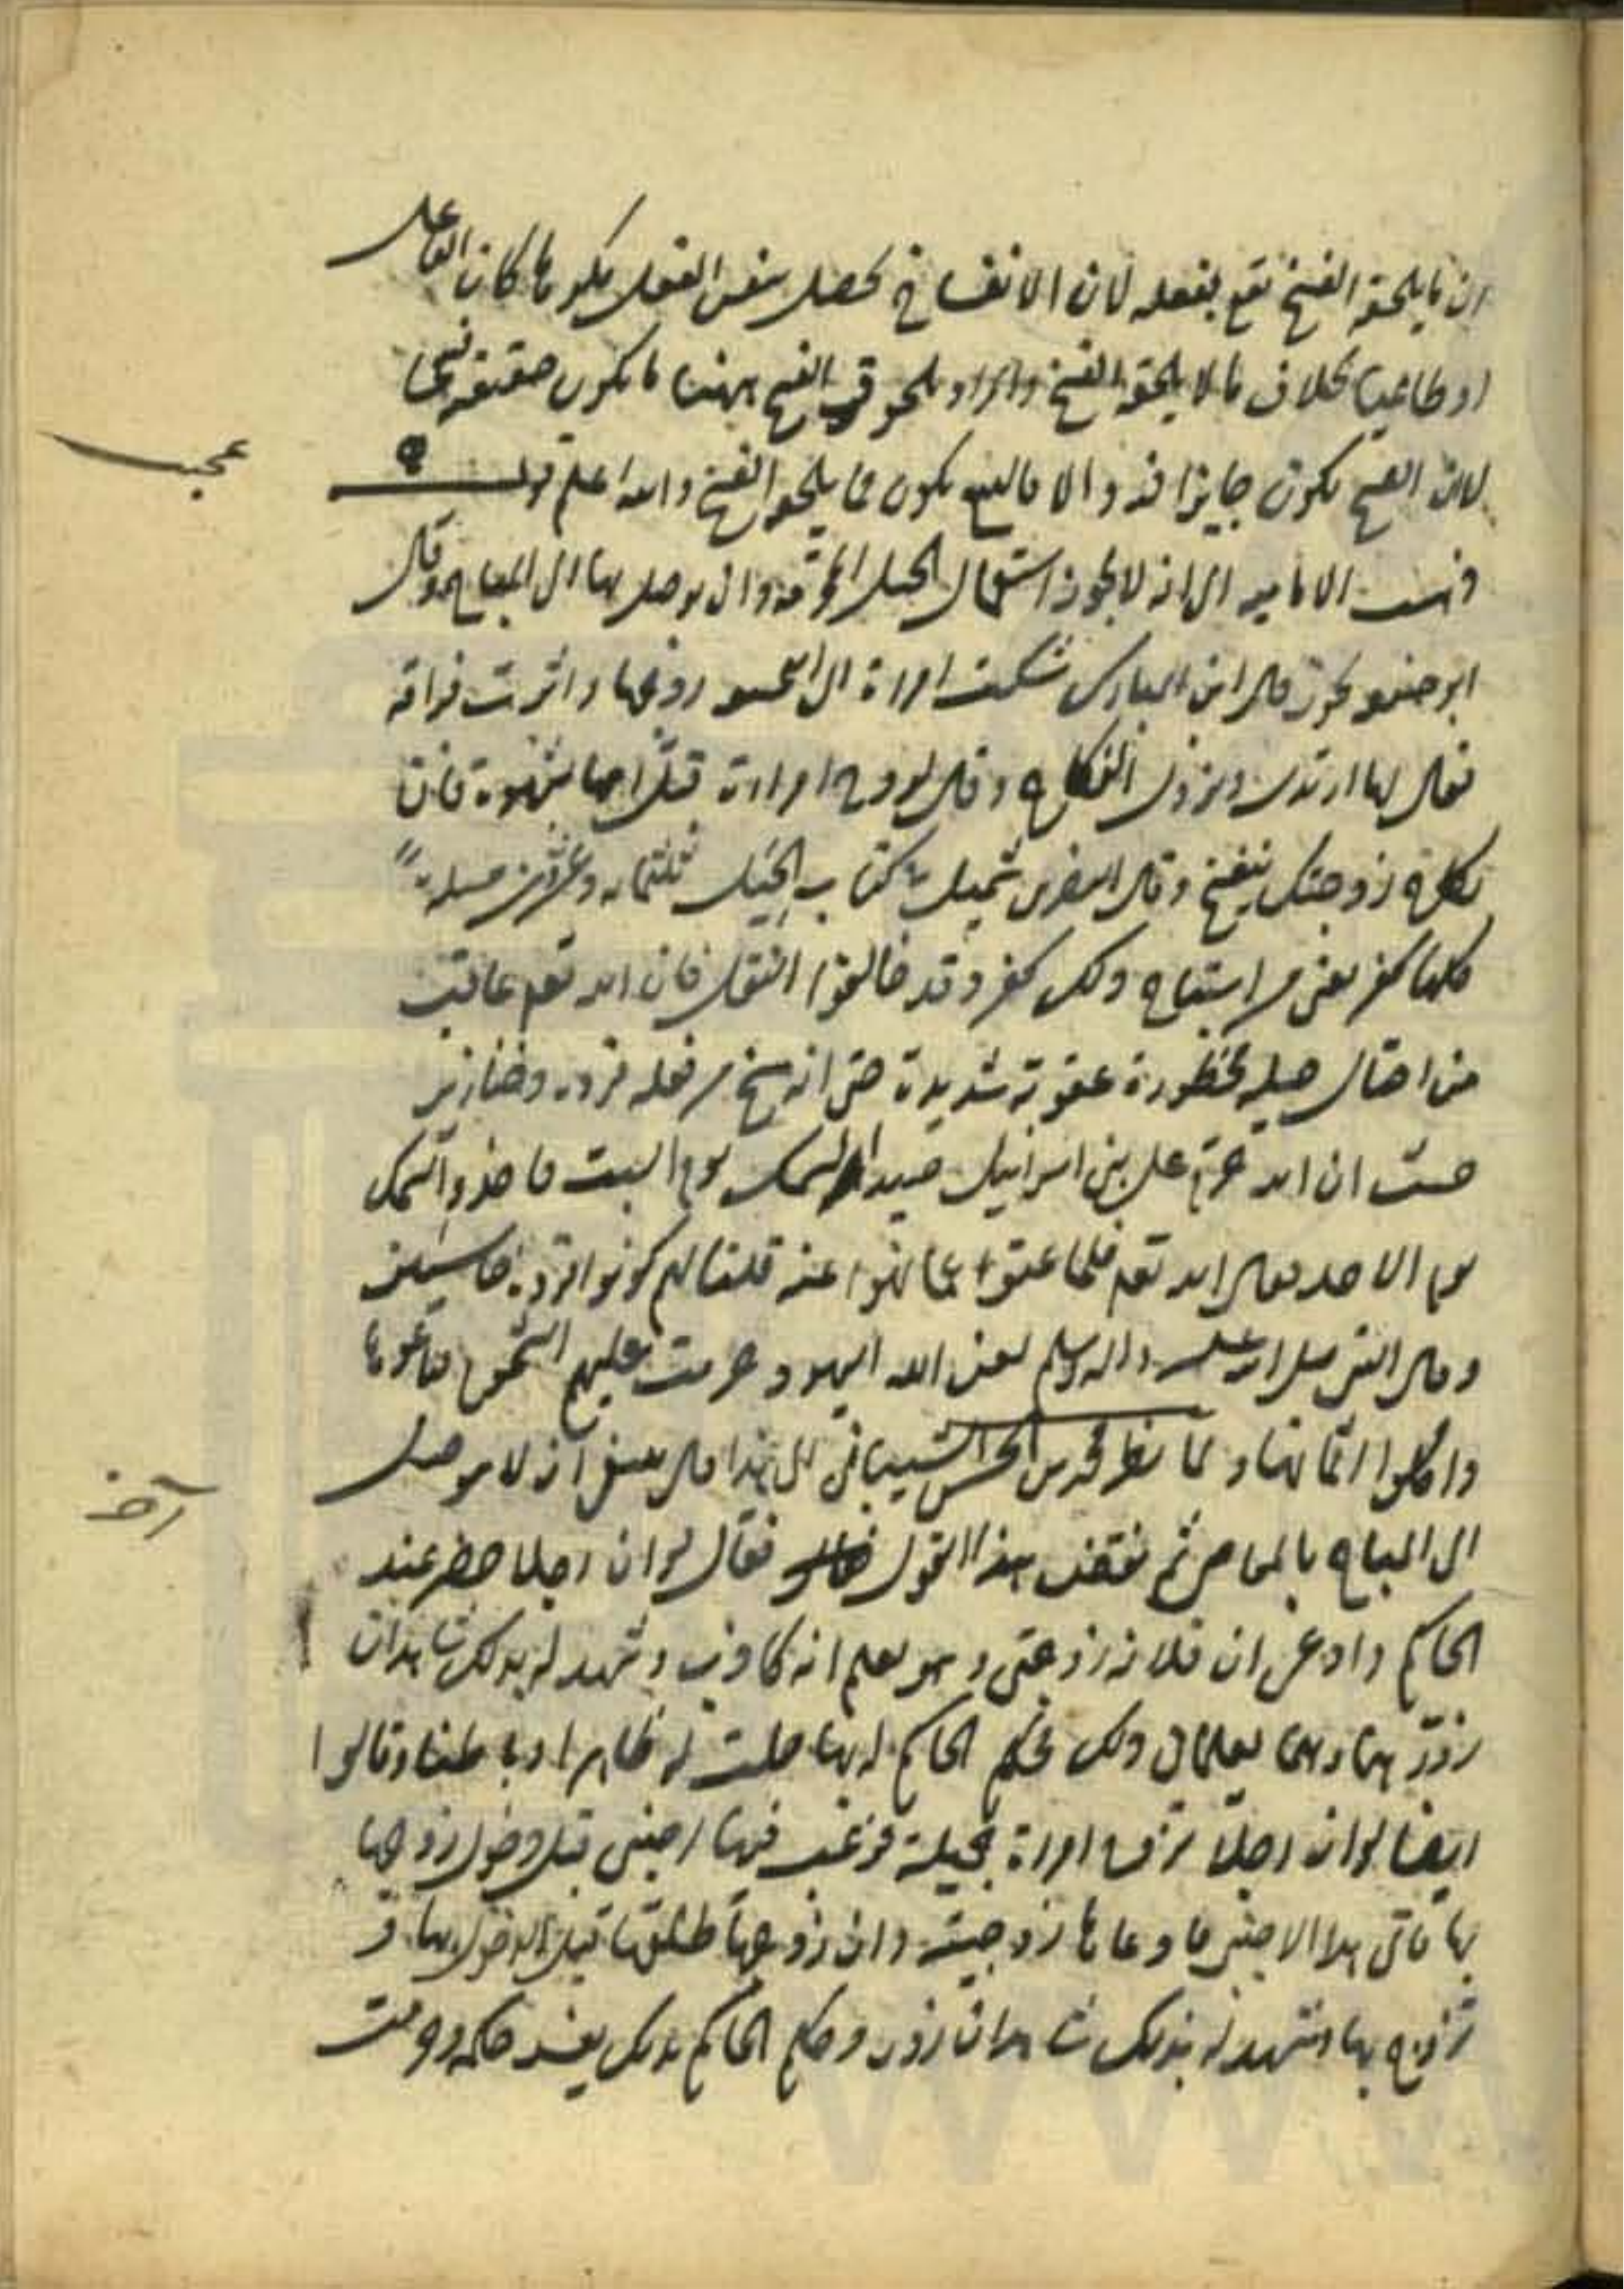 ان ما يلحقه الفسخ يقع بفعله لان الانفساخ يحصل بنفس الفعل مكرها كان الفاعل
او طائعا بخلاف ما لا يلحقه الفسخ والمراد بلحوق الفسخ ههنا ما يكون حقيقة
لان الفسخ يكون جايزا فيه والا فالبيع يكون مما يلحقه الفسخ والله اعلم قوله
عجيب
ذهبت الاماميه الى انه لا يجوز استعمال الحيل المحرمة وان توصل بها الى المباح وقال
ابو حنيفه يجوز قال ابن المبارك شكت امراة الى زوجها واثرت فراقه
فقال لها ارتدى ويزول النكاح وقال لزوج امراة قبل امها بشهوة فان
نكاح زوجتك ينفسخ وقال النضر بن شميل في كتاب الحيل ثلثمائه وعشرين مسئلة
كلها كفر يعنى من استباح ذلك كفر وقد خالفوا العقل فان الله تعم عاقب
من احتال حيله محظورة عقوبة شديدة حتى انه مسخ من فعله قردة وخنازير
حيث ان الله حرم على بنى اسرائيل صيد السمك يوم السبت فاخذوا السمك
يوم الاحد فقال الله تعم فلما عتوا عما نهوا عنه قلنا لهم كونوا قردة خاسئين
وقال النبى صلى الله عليه واله وسلم لعن الله اليهود حرمت عليهم الشحوم فباعوها
واكلوا اثمانها ولما نظر محمد بن الحسن الشيبانى الى هذا قال ينبغى ان لا يتوصل
آخر
الى المباح بالمعاصى ثم نقض هذا القول فقال لو ان رجلا حضر عند
الحاكم وادعى ان فلانه زوجتى وهو يعلم انه كاذب وشهد له بذلك شاهدان
زورا وهما يعلمان ذلك فحكم الحاكم له بها حلت له ظاهرا وباطنا وقالوا
ايضا لو ان رجلا تزوج امراة جميلة فرغب فيها اجنبى قبل دخول زوجها
بها فاتى هذا الاجنبى فادعاها زوجيته وان زوجها طلقها قبل الدخول بها و
تزوج بها وشهد له بذلك شاهدان زور وحكم الحاكم بذلك نفذ حكمه وحرمت